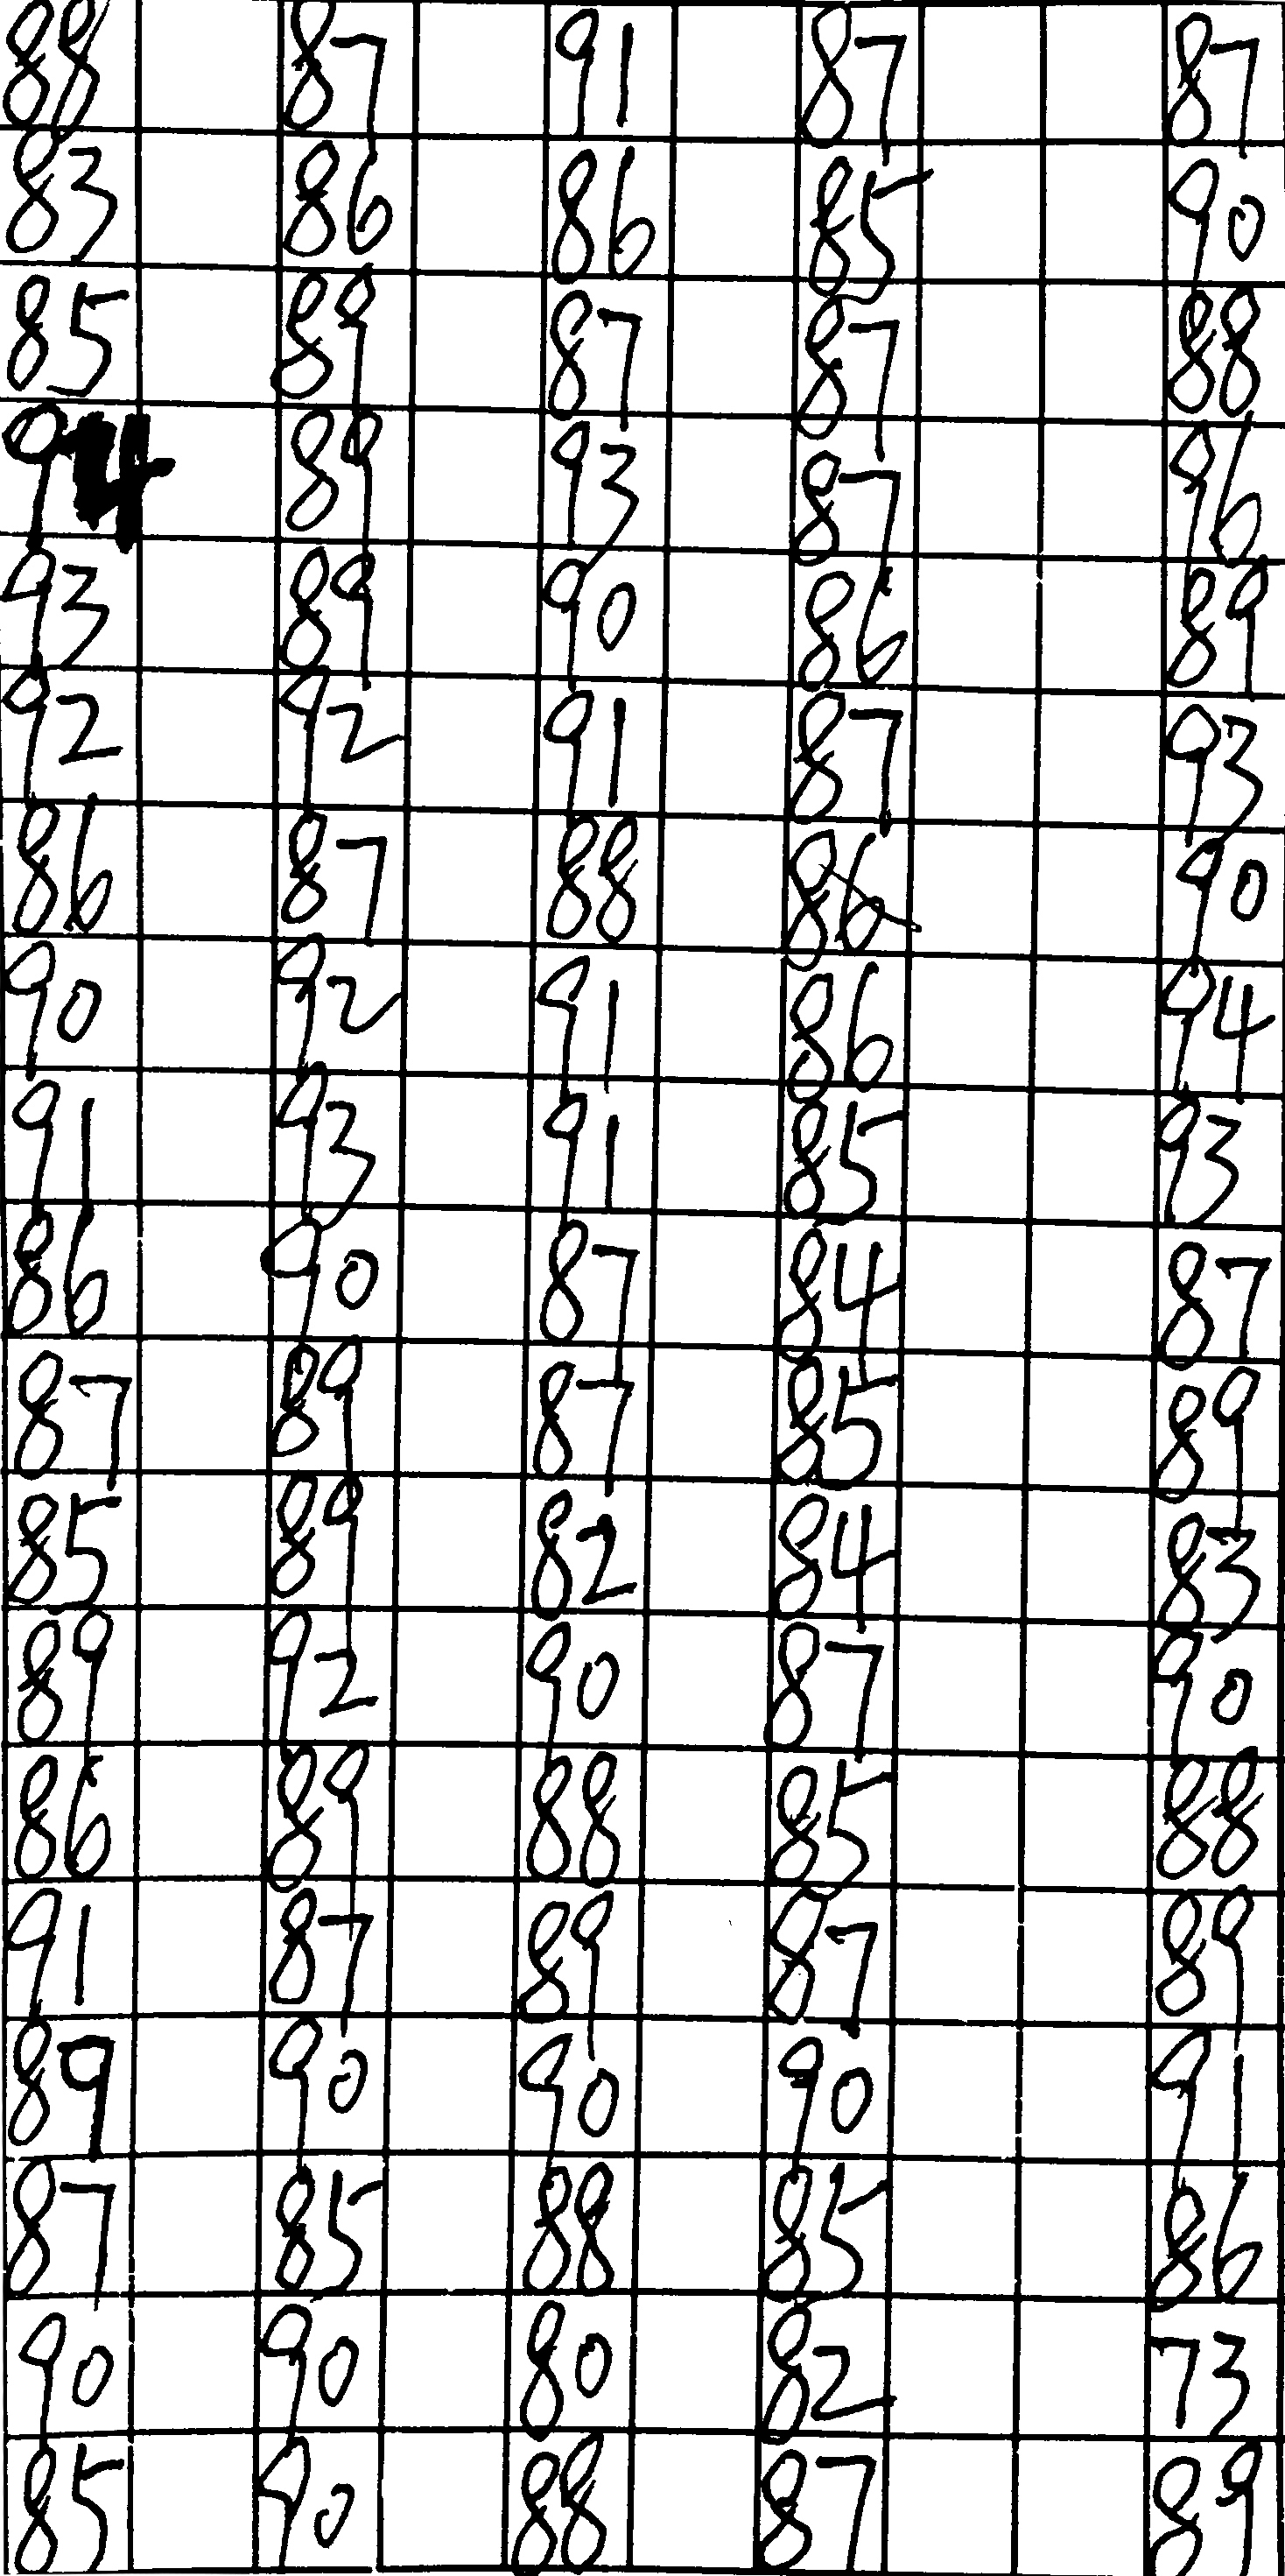 88 87 91 87 87
83 86 86 85 90
85 89 87 87 88
94 89 93 87 96
93 89 90 86 89
92 92 91 87 93
86 87 88 86 90
90 92 91 86 94
91 93 91 85 93
86 90 87 84 87
87 89 87 85 89
85 89 82 84 83
89 92 90 87 90
86 89 88 85 88
91 87 89 87 89
89 90 90 90 91
87 85 88 85 86
90 90 80 82 73
85 90 88 87 89